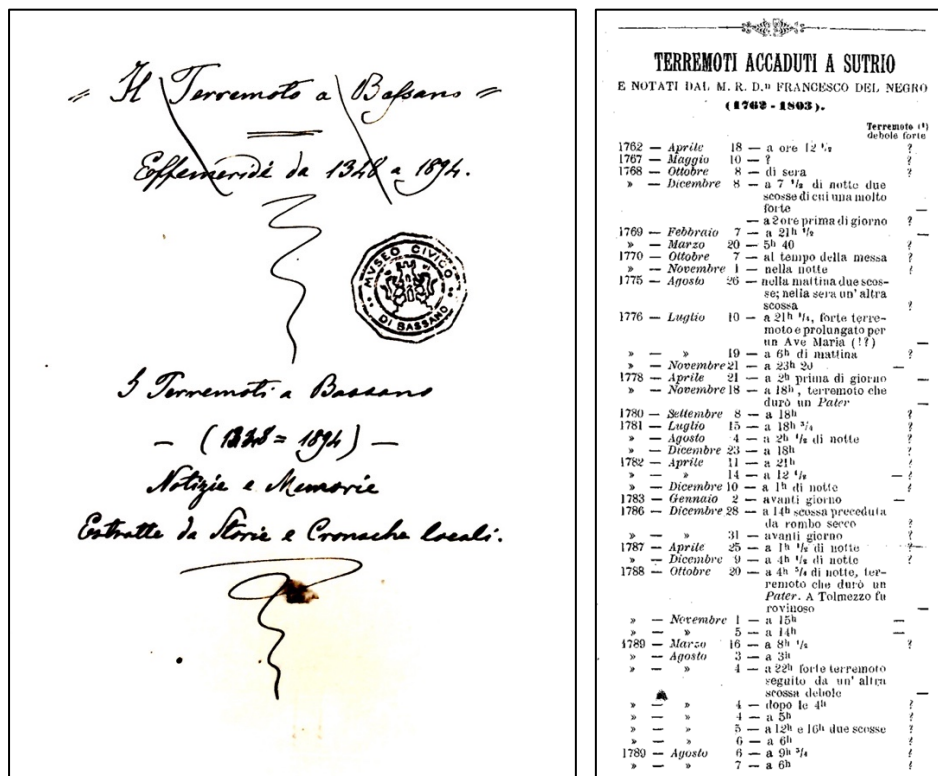 = Il Terremoto a Bassano =
Effemeride da 1348 a 1894.
MVSEO CIVICO
DI BASSANO
I Terremoti a Bassano
— (1348 = 1894) —
Notizie e Memorie
Estratte da Storie e Cronache locali.
TERREMOTI ACCADUTI A SUTRIO
E NOTATI DAL M. R. D.n FRANCESCO DEL NEGRO
(1762 - 1803).
Terremoto (1)
debole forte
1762 — Aprile 18 — a ore 12 1/2 ?
1767 — Maggio 10 — ? ?
1768 — Ottobre 8 — di sera ?
» — Dicembre 8 — a 7 1/2 di notte due
scosse di cui una molto
forte —
— a 2 ore prima di giorno ?
1769 — Febbraio 7 — a 21h 1/2 —
» — Marzo 20 — 5h 40 ?
1770 — Ottobre 7 — al tempo della messa ?
» — Novembre 1 — nella notte ?
1775 — Agosto 26 — nella mattina due scos-
se; nella sera un' altra
scossa ?
1776 — Luglio 10 — a 21h 1/4, forte terre-
moto e prolungato per
un Ave Maria (!?) —
» — » 19 — a 6h di mattina ?
» — Novembre 21 — a 23h 20 —
1778 — Aprile 21 — a 2h prima di giorno —
» — Novembre 18 — a 18h, terremoto che
durò un Pater —
1780 — Settembre 8 — a 18h ?
1781 — Luglio 15 — a 18h 3/4 ?
» — Agosto 4 — a 2h 1/2 di notte ?
» — Dicembre 23 — a 18h ?
1782 — Aprile 11 — a 21h ?
» — » 14 — a 12 1/2 — ?
» — Dicembre 10 — a 1h di notte ?
1783 — Gennaio 2 — avanti giorno —
1786 — Dicembre 28 — a 14h scossa preceduta
da rombo secco ?
» — » 31 — avanti giorno ?
1787 — Aprile 25 — a 1h 1/2 di notte ?
» — Dicembre 9 — a 4h 1/2 di notte ?
1788 — Ottobre 20 — a 4h 3/4 di notte, ter-
remoto che durò un
Pater. A Tolmezzo fu
rovinoso —
» — Novembre 1 — a 15h —
» — » 5 — a 14h —
1789 — Marzo 16 — a 8h 1/2 ?
» — Agosto 3 — a 3h ?
» — » 4 — a 22h forte terremoto
seguito da un' altra
scossa debole —
» — » 4 — dopo le 4h ?
» — » 4 — a 5h ?
» — » 5 — a 12h e 16h due scosse ?
» — » 6 — a 6h ?
1789 — Agosto 6 — a 9h 3/4 ?
» — » 7 — a 6h ?